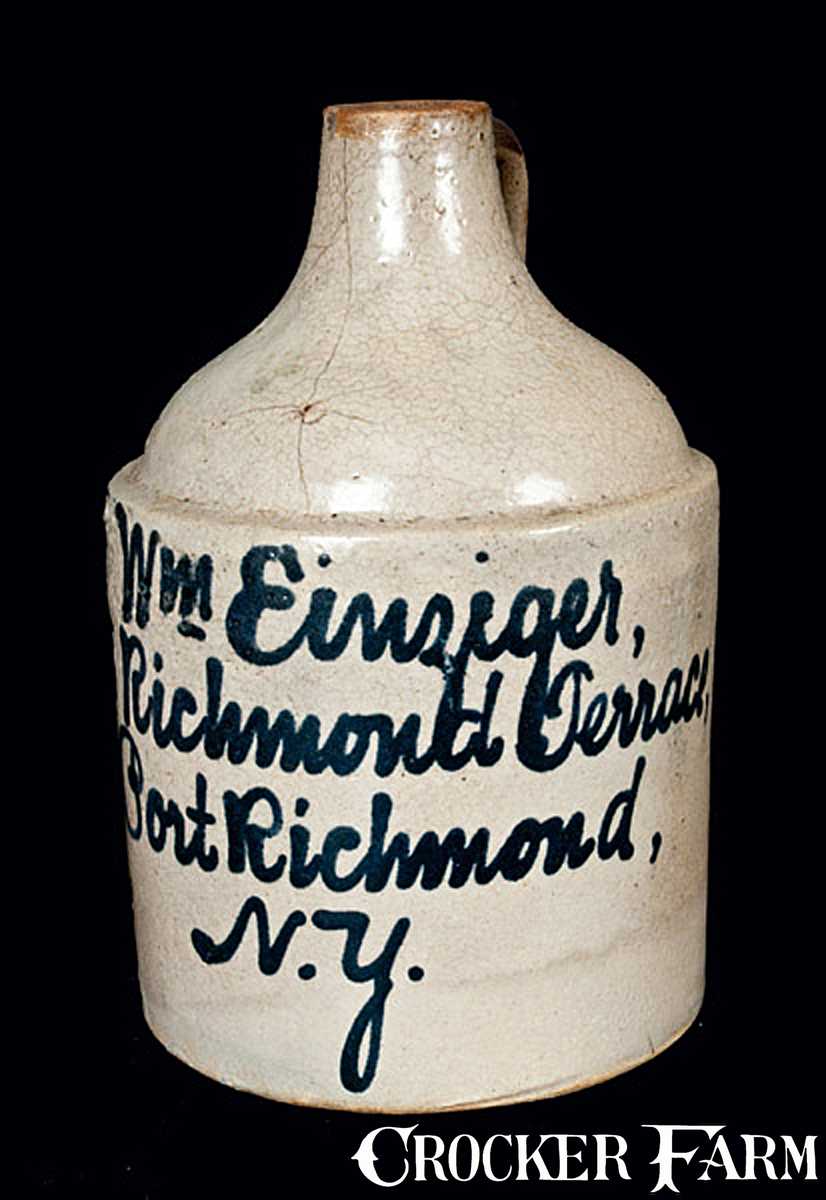 Wm Einziger,
Richmond Terrace,
Port Richmond,
N.Y.
CROCKER FARM